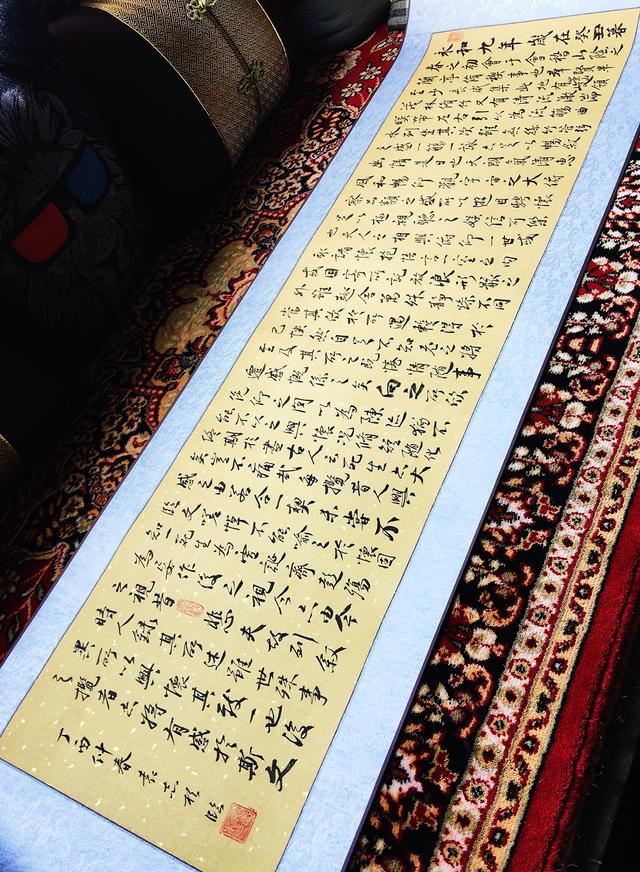 永和九年歲在癸丑暮
春之初會于會稽山陰之
蘭亭脩禊事也群賢畢
至少長咸集此地有領
茂林脩竹又有清流激湍
帶左右引以為流觴曲
水列坐其次雖無絲竹管弦
之盛一觴一詠亦足以暢敘
幽情是日也天朗氣清惠
風和暢仰觀宇宙之大俯
察品類之盛所以遊目騁懷
足以極視聽之娛信可樂
也夫人之相與俯仰一世或
取諸懷抱悟言一室之內
或因寄所託放浪形骸之
外雖趣舍萬殊靜躁不同
當其欣於所遇輒得於
己快然自足不知老之將
至及其所之既倦情隨事
遷感慨係之矣向之所欣
俛仰之間以為陳迹猶不
能不以之興懷況脩短隨化
終期於盡古人云死生亦大
矣豈不痛哉每攬昔人興
感之由若合一契未嘗不
臨文嗟悼不能喻之於懷固
知一死生為虛誕齊彭殤
為妄作後之視今亦由今
之視昔悲夫故列敘
時人錄其所述雖世殊事
異所以興懷其致一也後
之攬者亦將有感於斯文
丁酉仲春